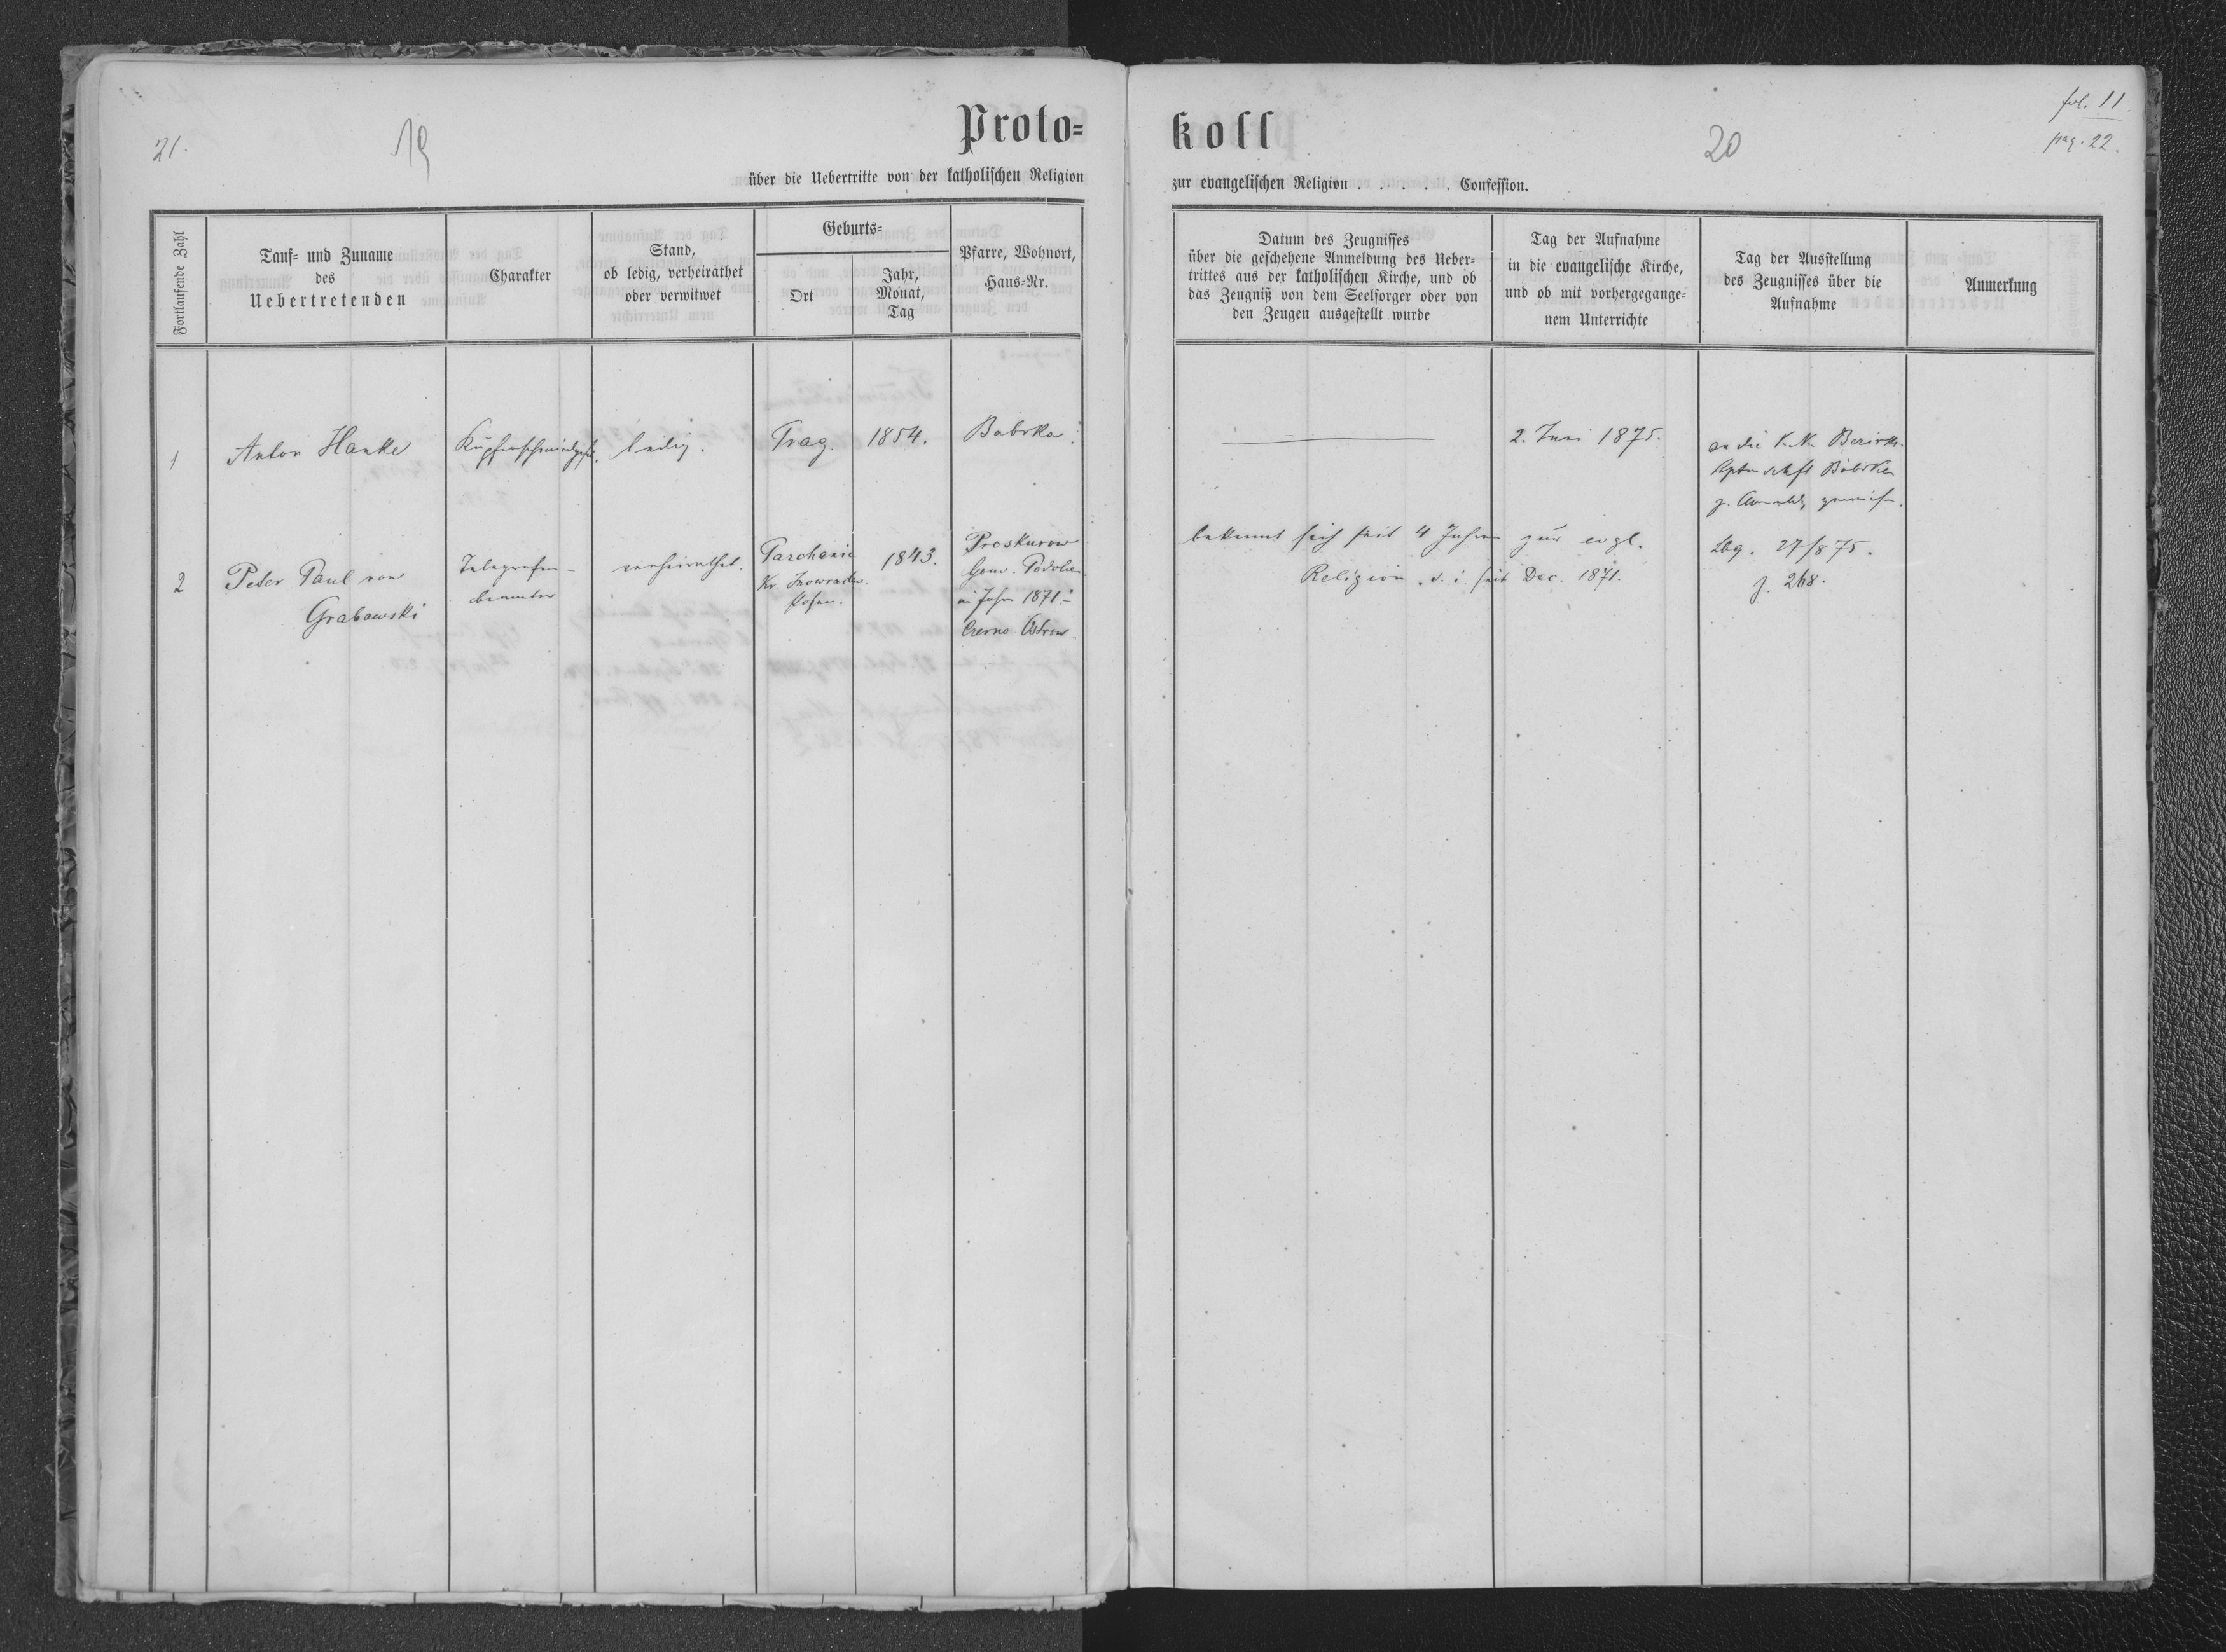 21.
19
Proto=
über die Uebertritte von der katholischen Religion
Fortlaufende Zahl
Tauf= und Zuname
des
Uebertretenden
Charakter
Stand,
ob ledig, verheirathet
oder verwitwet
Geburts=
Ort
Jahr,
Monat,
Tag
Pfarre, Wohnort,
Haus=Nr.
1
Anton Hanke
Kupferschmiedges.
ledig.
Prag.
1854.
Bobrka.
2
Peter Paul von
Grabowski
Telegrafen-
beamter
verheirathet.
Parchanie
Kr. Inowraclaw.
Posen.
1843.
Proskurow
Gouv. Podolien
im Jahre 1871
Czerno Ostrow.
koll
20
fol. 11.
pag. 22.
zur evangelischen Religion . . . . . . Confession.
Datum des Zeugnisses
über die geschehene Anmeldung des Ueber=
trittes aus der katholischen Kirche, und ob
das Zeugniß von dem Seelsorger oder von
den Zeugen ausgestellt wurde
Tag der Aufnahme
in die evangelische Kirche,
und ob mit vorhergegange=
nem Unterrichte
Tag der Ausstellung
des Zeugnisses über die
Aufnahme
Anmerkung
2. Juni 1875.
an die k. k. Bezirks-
Hptmschft Bobrka
z.
bekennt sich seit 4 Jahren zur evgl.
Religion. d. i. seit Dec. 1871.
Lbg. 27/8 75.
Z. 268.